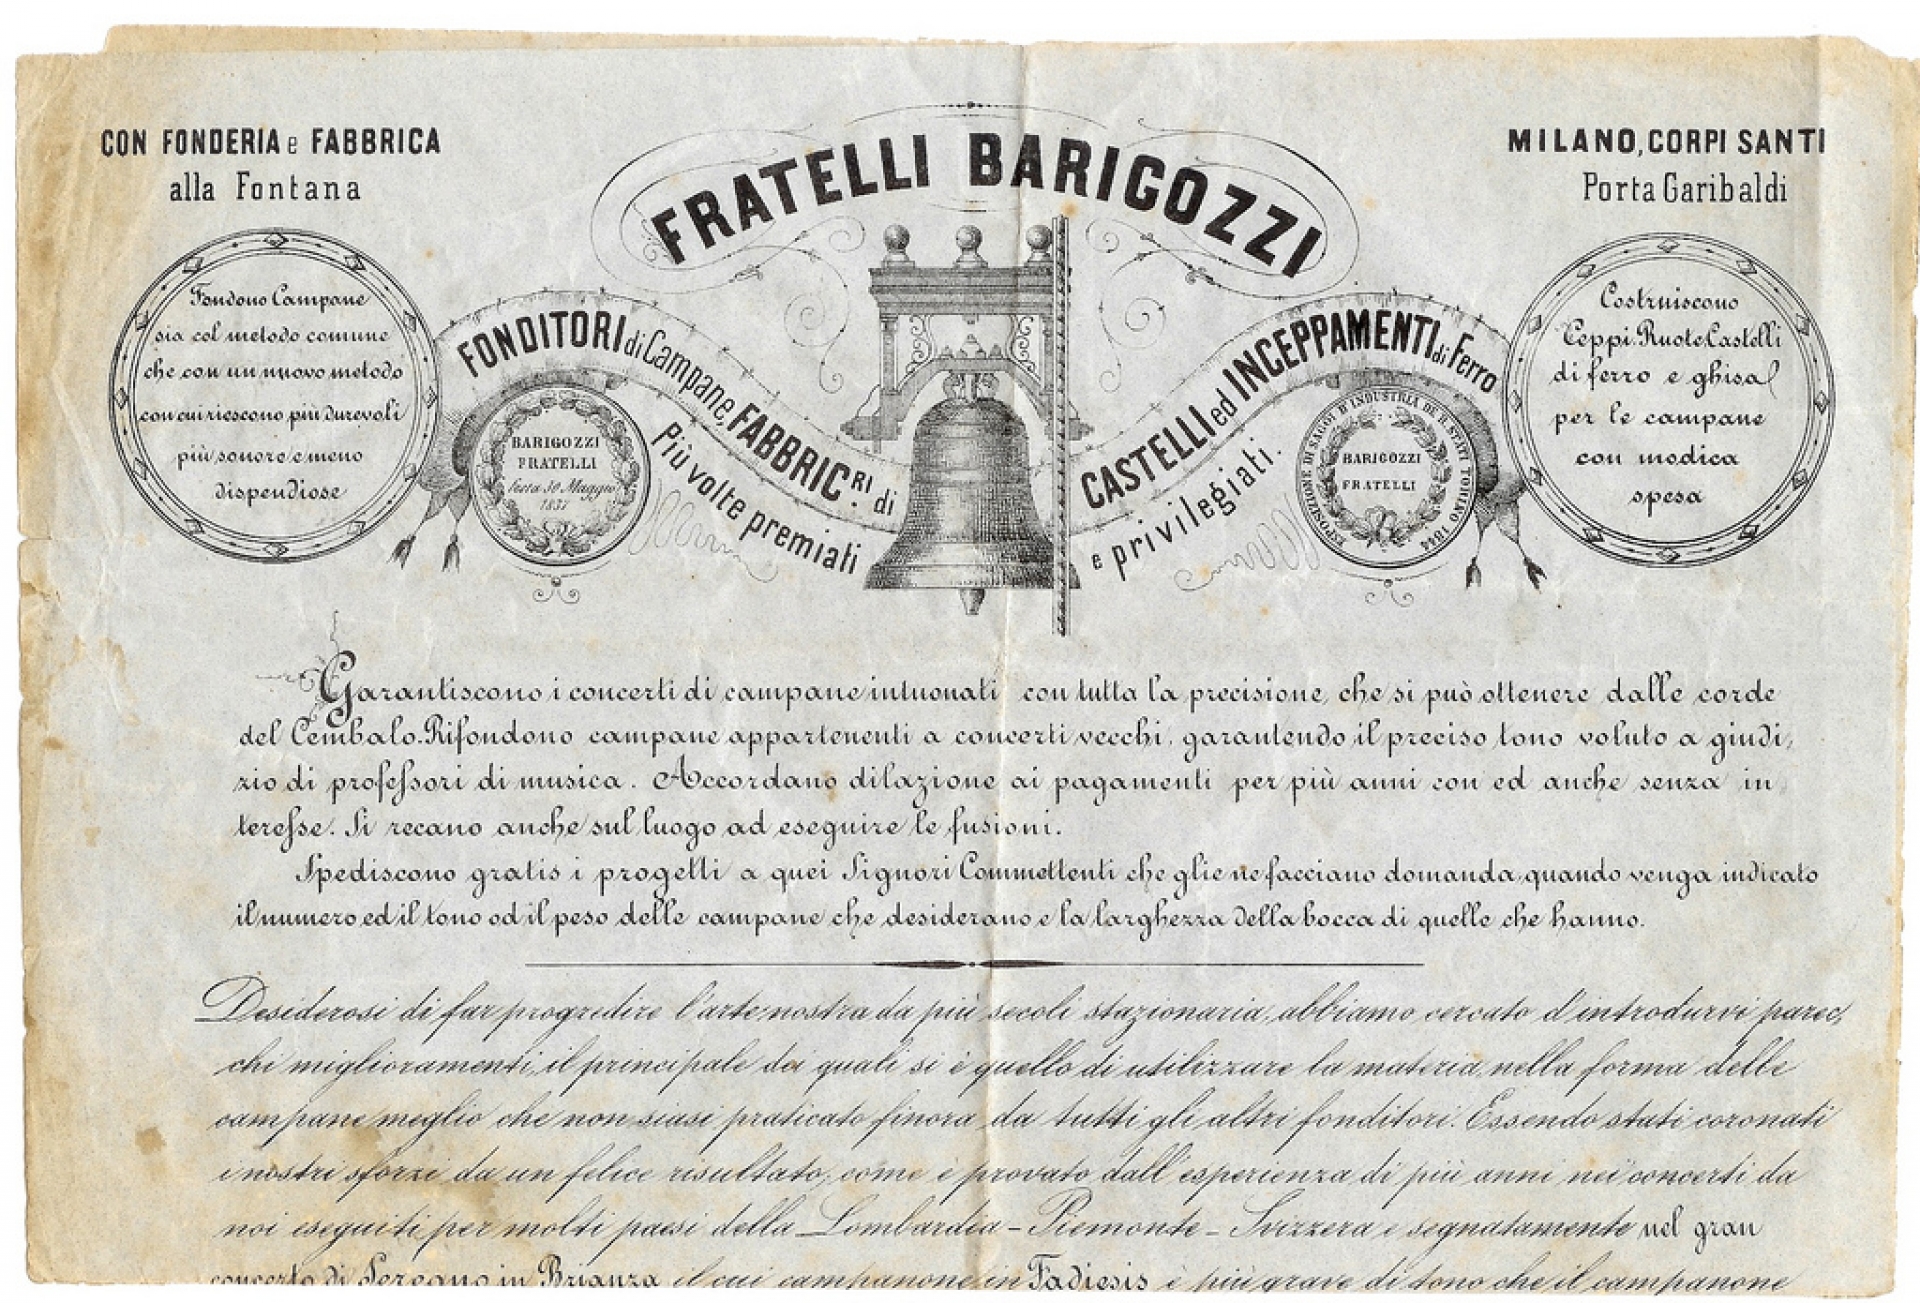 CON FONDERIA e FABBRICA
alla Fontana
FRATELLI BARIGOZZI
MILANO, CORPI SANTI
Porta Garibaldi
Fondono Campane
sia col metodo comune
che con un nuovo metodo
con cui riescono più durevoli
più sonore e meno
dispendiose
FONDITORI di Campane, FABBRIC.RI di
CASTELLI ed INCEPPAMENTI di Ferro
Più volte premiati
e privilegiati.
BARIGOZZI
FRATELLI
30 Maggio
ESPOSIZIONE DI SAGGI D'INDUSTRIA DE R. STATI TORINO 1844
BARIGOZZI
FRATELLI
Costruiscono
Ceppi. Ruote Castelli
di ferro e ghisa
per le campane
con modica
spesa
Garantiscono i concerti di campane intuonati con tutta la precisione, che si può ottenere dalle corde
del Cembalo. Rifondono campane appartenenti a concerti vecchi, garantendo il preciso tono voluto a giudi,
zio di professori di musica. Accordano dilazione ai pagamenti per più anni con ed anche senza in
teresse. Si recano anche sul luogo ad eseguire le fusioni.
Spediscono gratis i progetti a quei Signori Committenti che glie ne facciano domanda, quando venga indicato
il numero ed il tono od il peso delle campane che desiderano e la larghezza della bocca di quelle che hanno.
Desiderosi di far progredire l'arte nostra da più secoli stazionaria, abbiamo cercato d'introdurvi parec,
chi miglioramenti, il principale dei quali si è quello di utilizzare la materia nella forma delle
campane meglio che non siasi praticato finora da tutti gli altri fonditori. Essendo stati coronati
i nostri sforzi da un felice risultato, come è provato dall'esperienza di più anni nei concerti da
noi eseguiti per molti paesi della Lombardia - Piemonte - Svizzera e segnatamente nel gran
concerto di Seregno in Brianza il cui campanone in Fadiesis è più grave di tono che il campanone